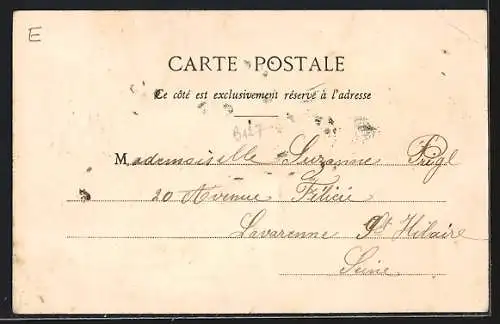 E
CARTE POSTALE
Ce côté est exclusivement réservé à l'adresse
6127
Mademoiselle Suzanne Prigl
20 Avenue Félicie
Lavarenne St Hilaire
Seine